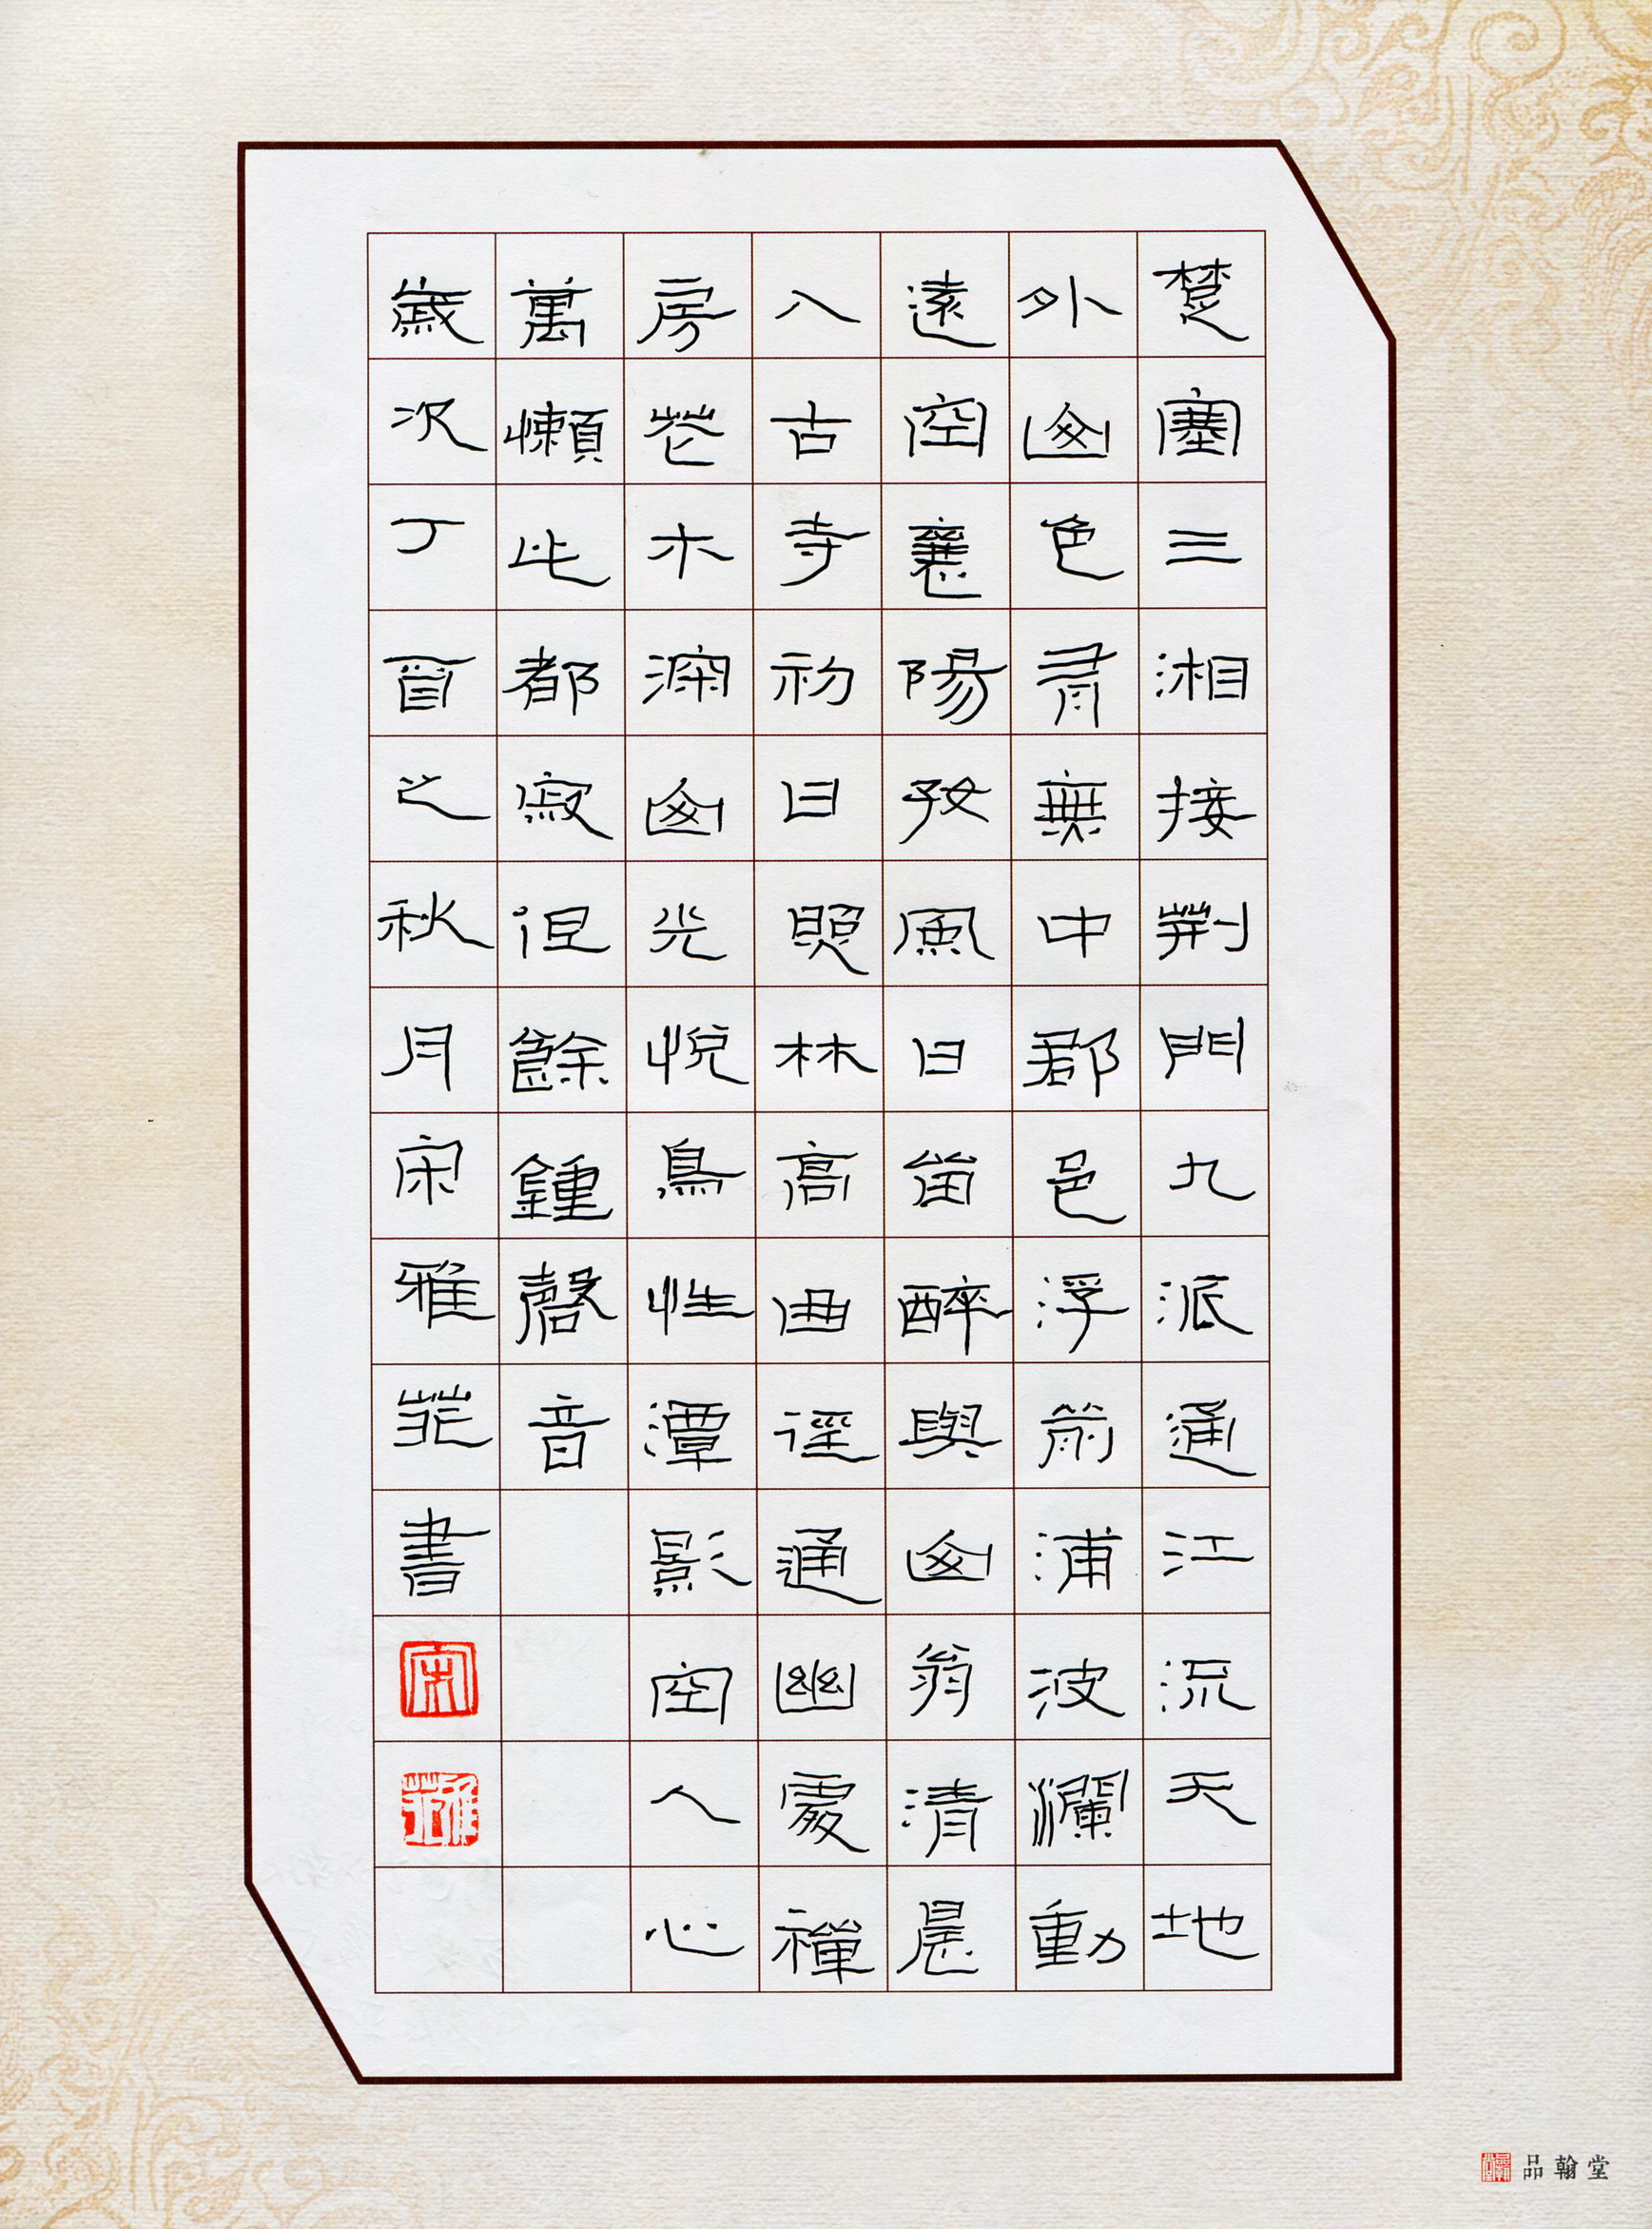 楚塞三湘接荆門九派通江流天地
外山色有無中郡邑浮前浦波瀾動
遠空襄陽好風日留醉與山翁清晨
入古寺初日照林高曲徑通幽處禪
房花木深山光悦鳥性潭影空人心
萬懶此都寂但餘鍾磬音
歲次丁酉之秋月宋雅菲書
宋
雅菲
品翰堂